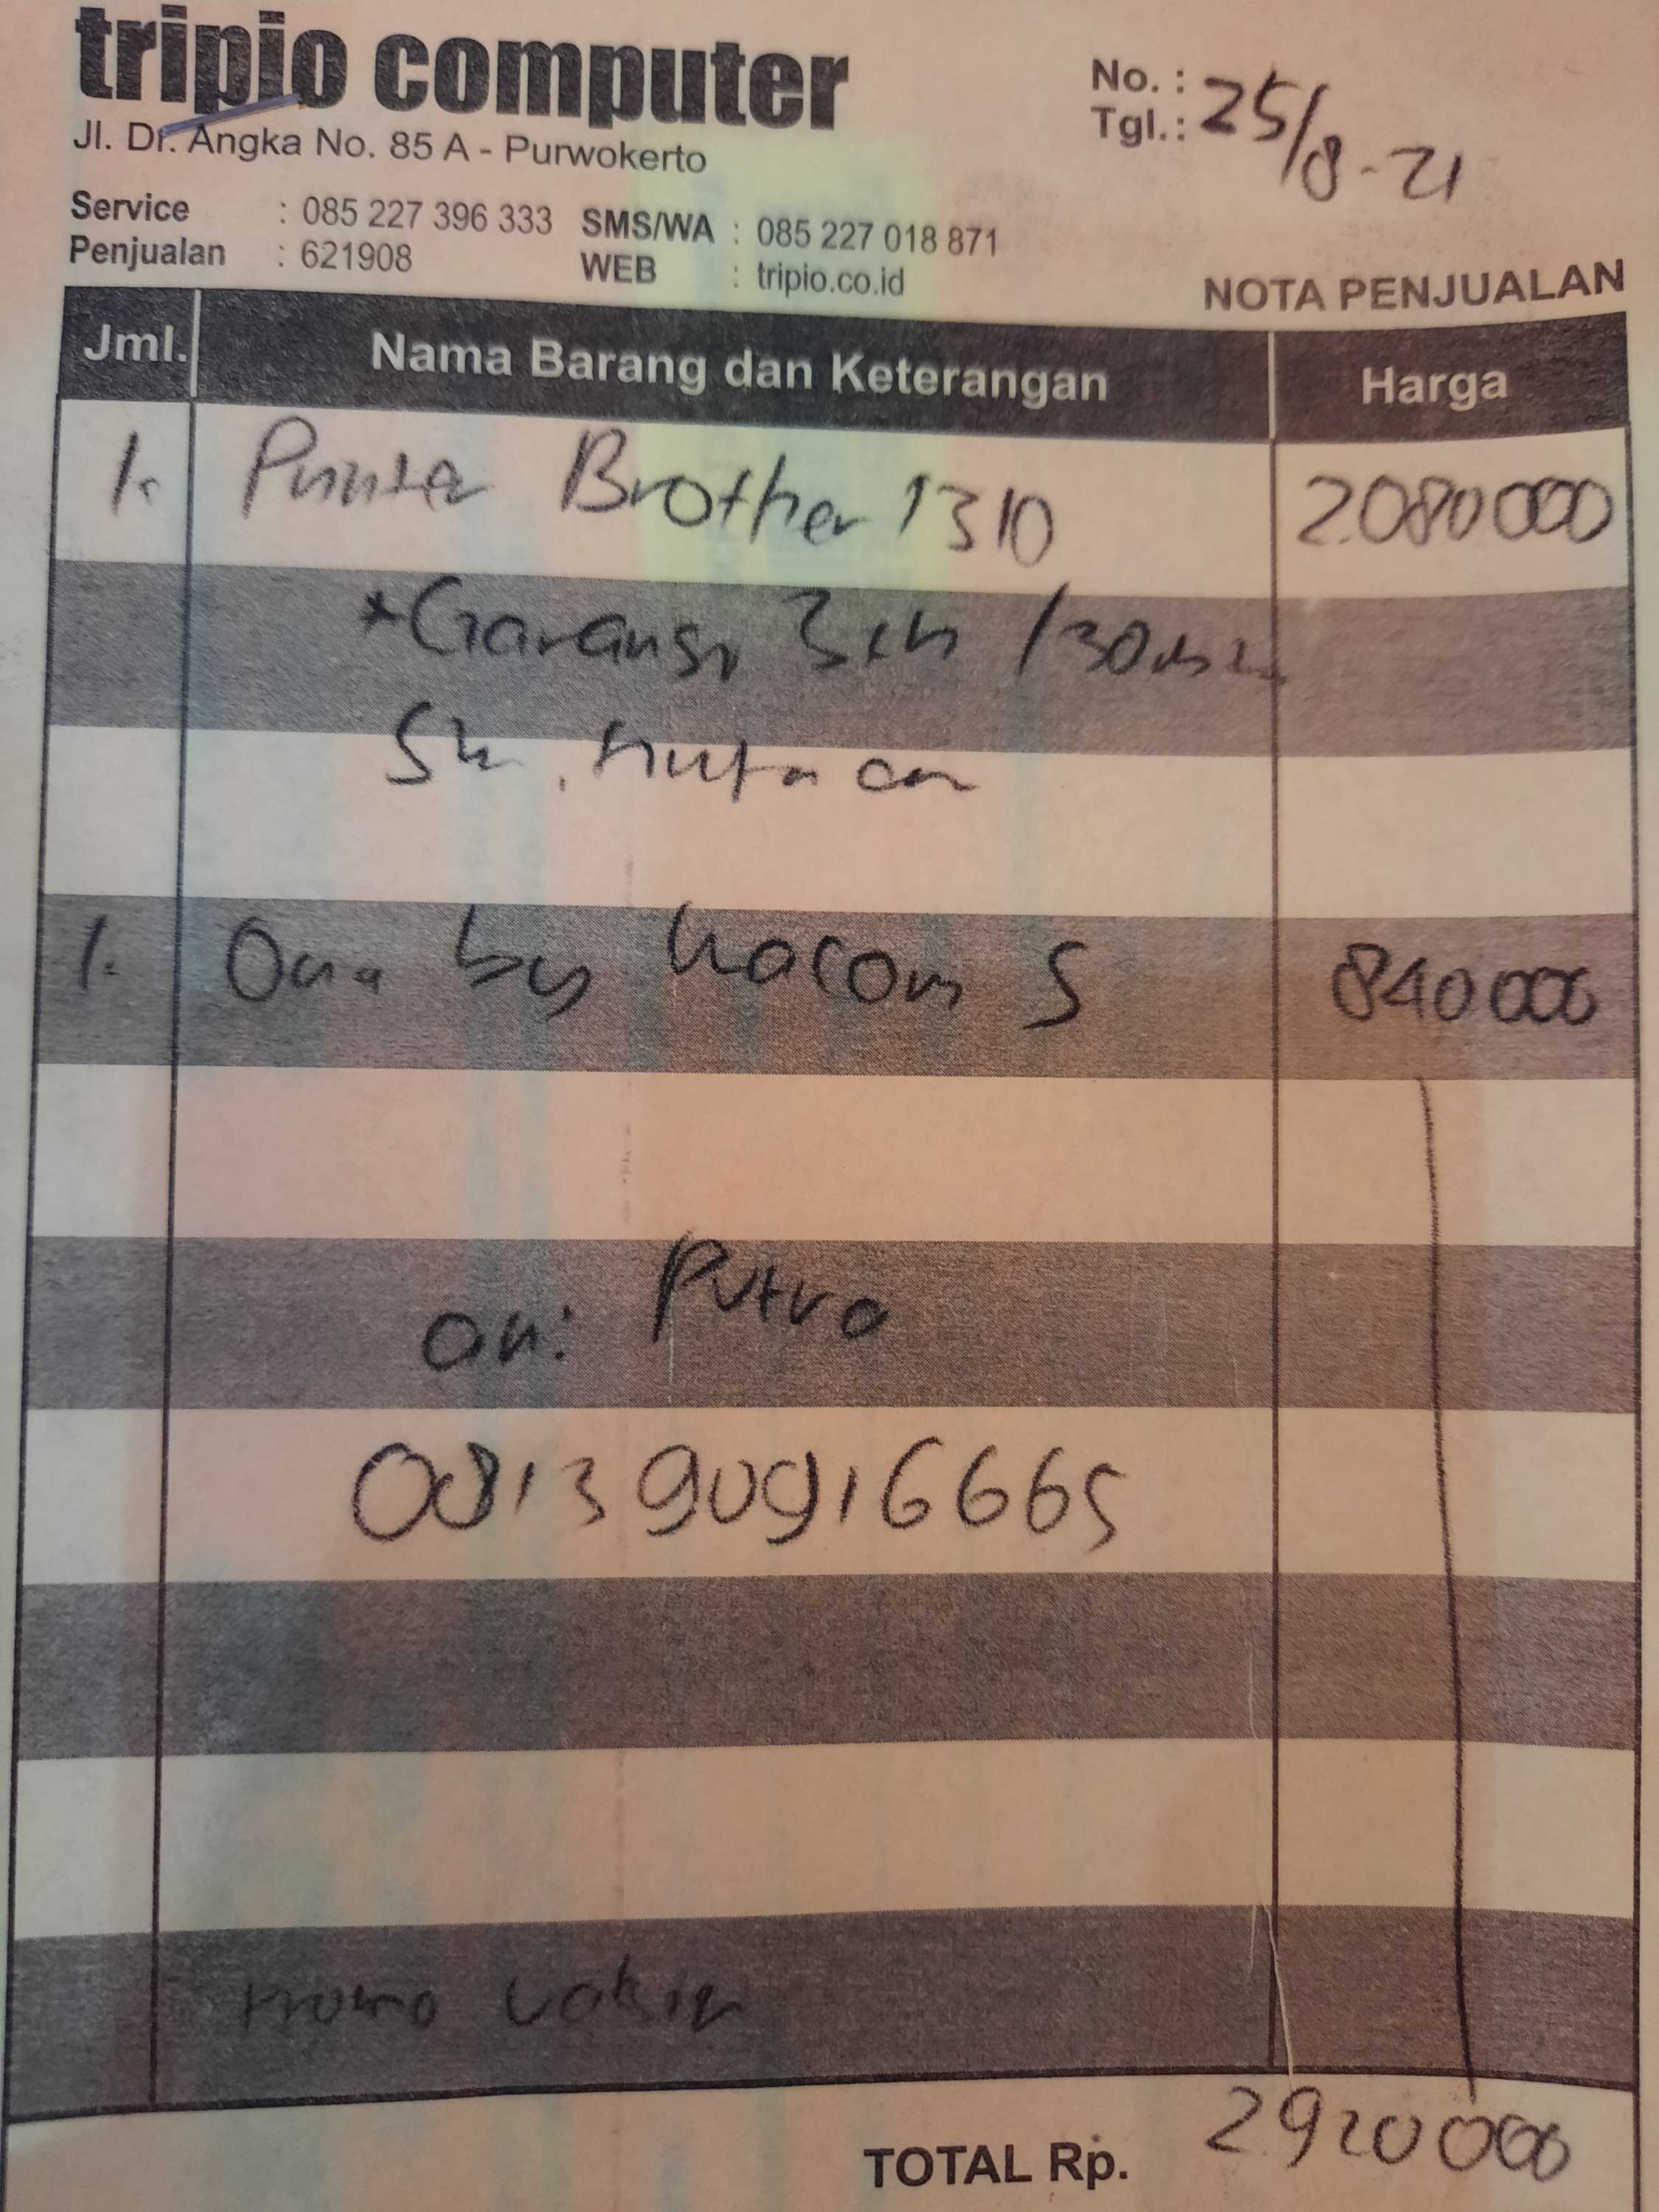 tripio computer
Jl. Dr. Angka No. 85 A - Purwokerto
No. :
Tgl. : 25/8-21
Service : 085 227 396 333 SMS/WA : 085 227 018 871
Penjualan : 621908 WEB : tripio.co.id
NOTA PENJUALAN
Jml. Nama Barang dan Keterangan Harga
1. Printer Brother 1310 2.080 000
*Garansi 3th /30
1. One by Wacom S 840 000
an: Putra
081390916665
promo vaksin
TOTAL Rp. 2.920 000